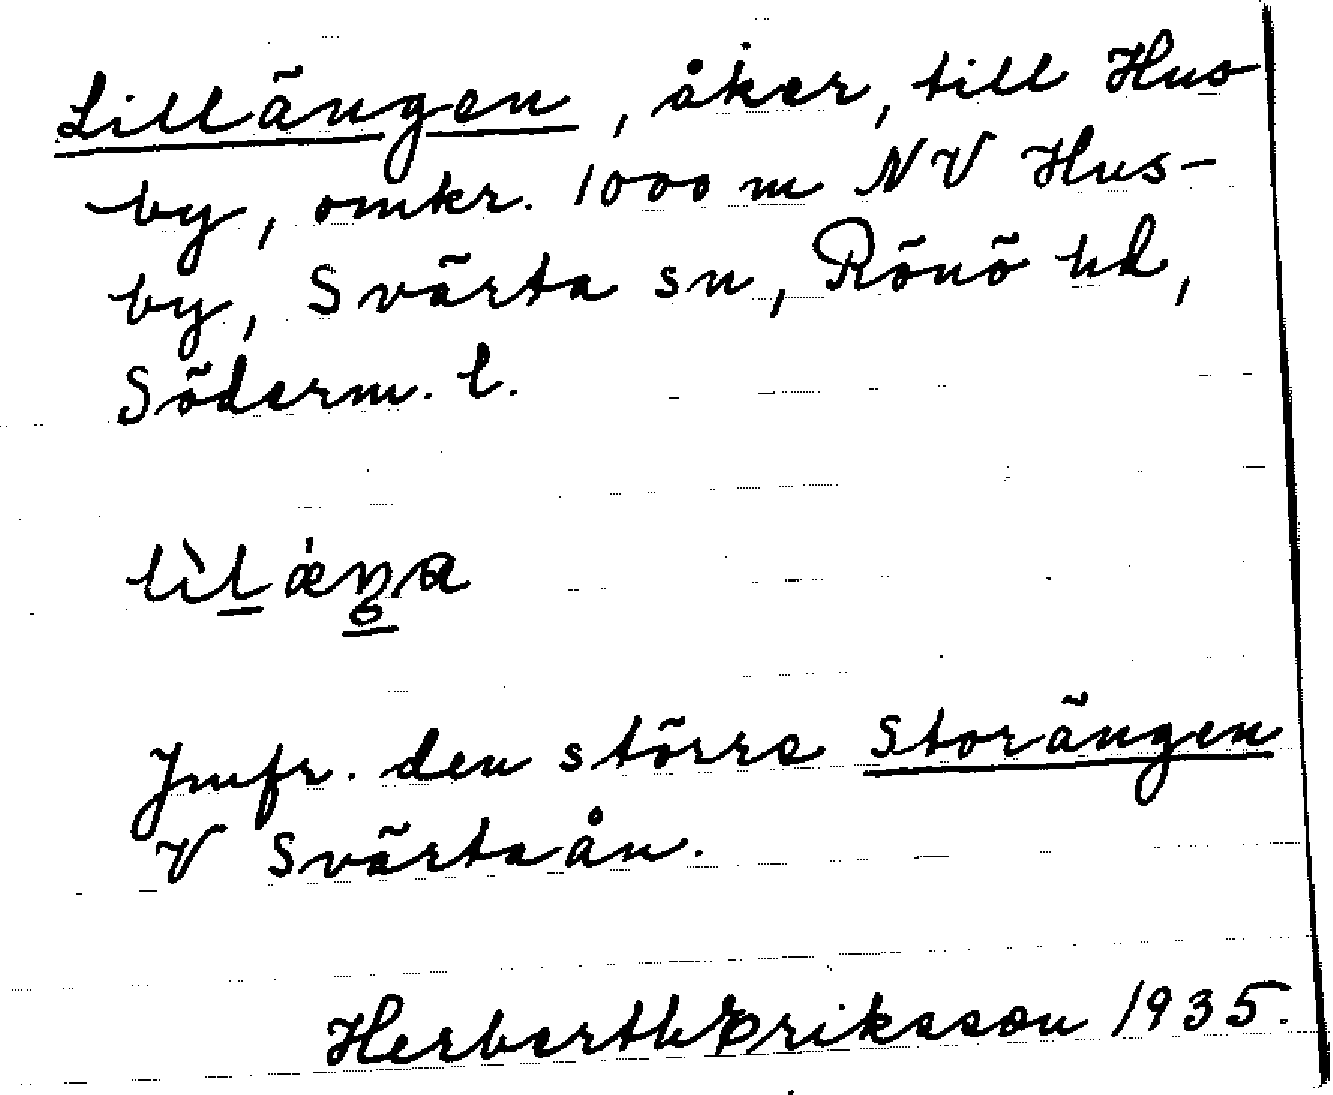 Lillängen, åker, till Hus-
by, omkr. 1000 m NV Hus-
by, Svärta sn, Rönö hd,
Söderm. l.
Jmfr. den större Storängen
V Svärtaån.
Herbert Eriksson 1935.